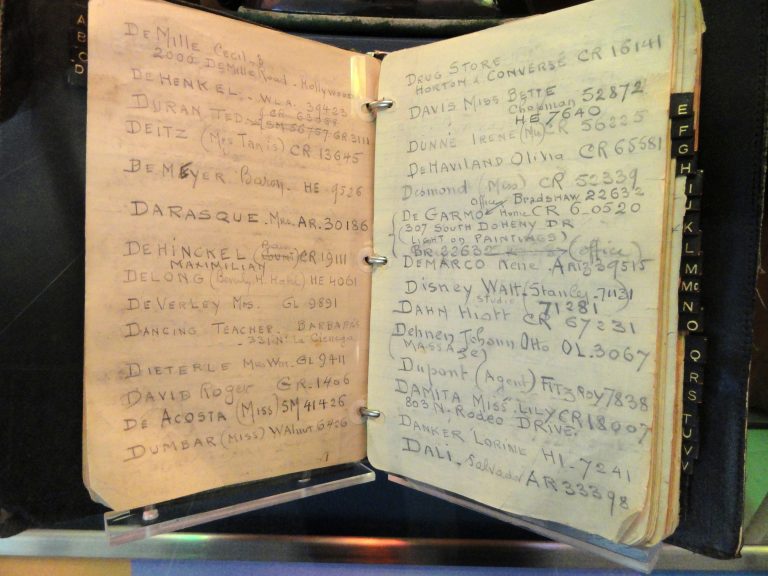 A
B
C
D
DeMille Cecil. B
2000 DeMille Road. Hollywood
DeHenkel. W.L.A. 39423
Duran Ted.
SM 56757 GR 3111
Deitz (Mrs Tanis) CR 13645
DeMeyer Baron. HE 9526
Darasque. Mrs. AR. 30186
DeHinckel CR 19111
Maximilian
DeLong HE 4061
DeVerley Mrs. GL 9891
Dancing Teacher. Barbara
331 N. La Cienega
Dieterle GL 9411
David Roger GR. 1406
De Acosta (Miss) SM 41426
Dumbar (Miss) Walnut 6426
Drug Store
Horton & Converse CR 16141
Davis Miss Bette
Chapman 52872
HE 7640
Dunne Irene CR 56225
DeHaviland Olivia CR 65581
Desmond (Miss) CR 52339
office Bradshaw 22632
De Garmo Home CR 6-0520
(307 South Doheny Dr
(Light on Paintings)
BR. 22632 (office)
DeMarco Rene. Ariz 39515
Disney Walt. Stanley. 71131
studio 71281
Dahn Hiatt CR 67231
Dehnen Johann Otto OL. 3067
(Massage)
Dupont (Agent) Fitzroy 7838
Damita Miss. Lily CR 18007
803 N. Rodeo Drive.
Danker Lorine HI-7241
Dali. Salvador AR 33398
E
F
G
H
I
J
K
L
M
Mc
N
O
Q
R
S
T
U
V